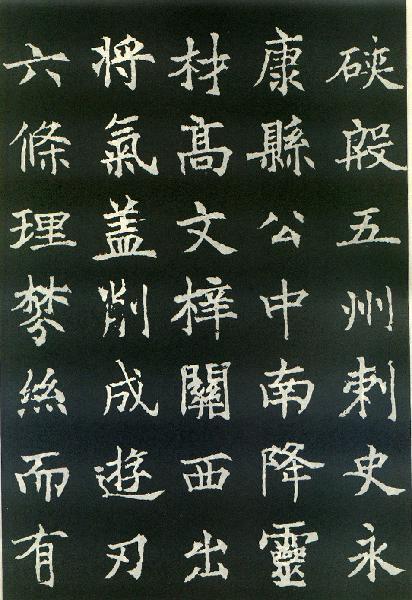 硤殷五州刺史永
康縣公中南降靈
材髙文梓關西出
將氣蓋削成遊刃
六條理棼絲而有